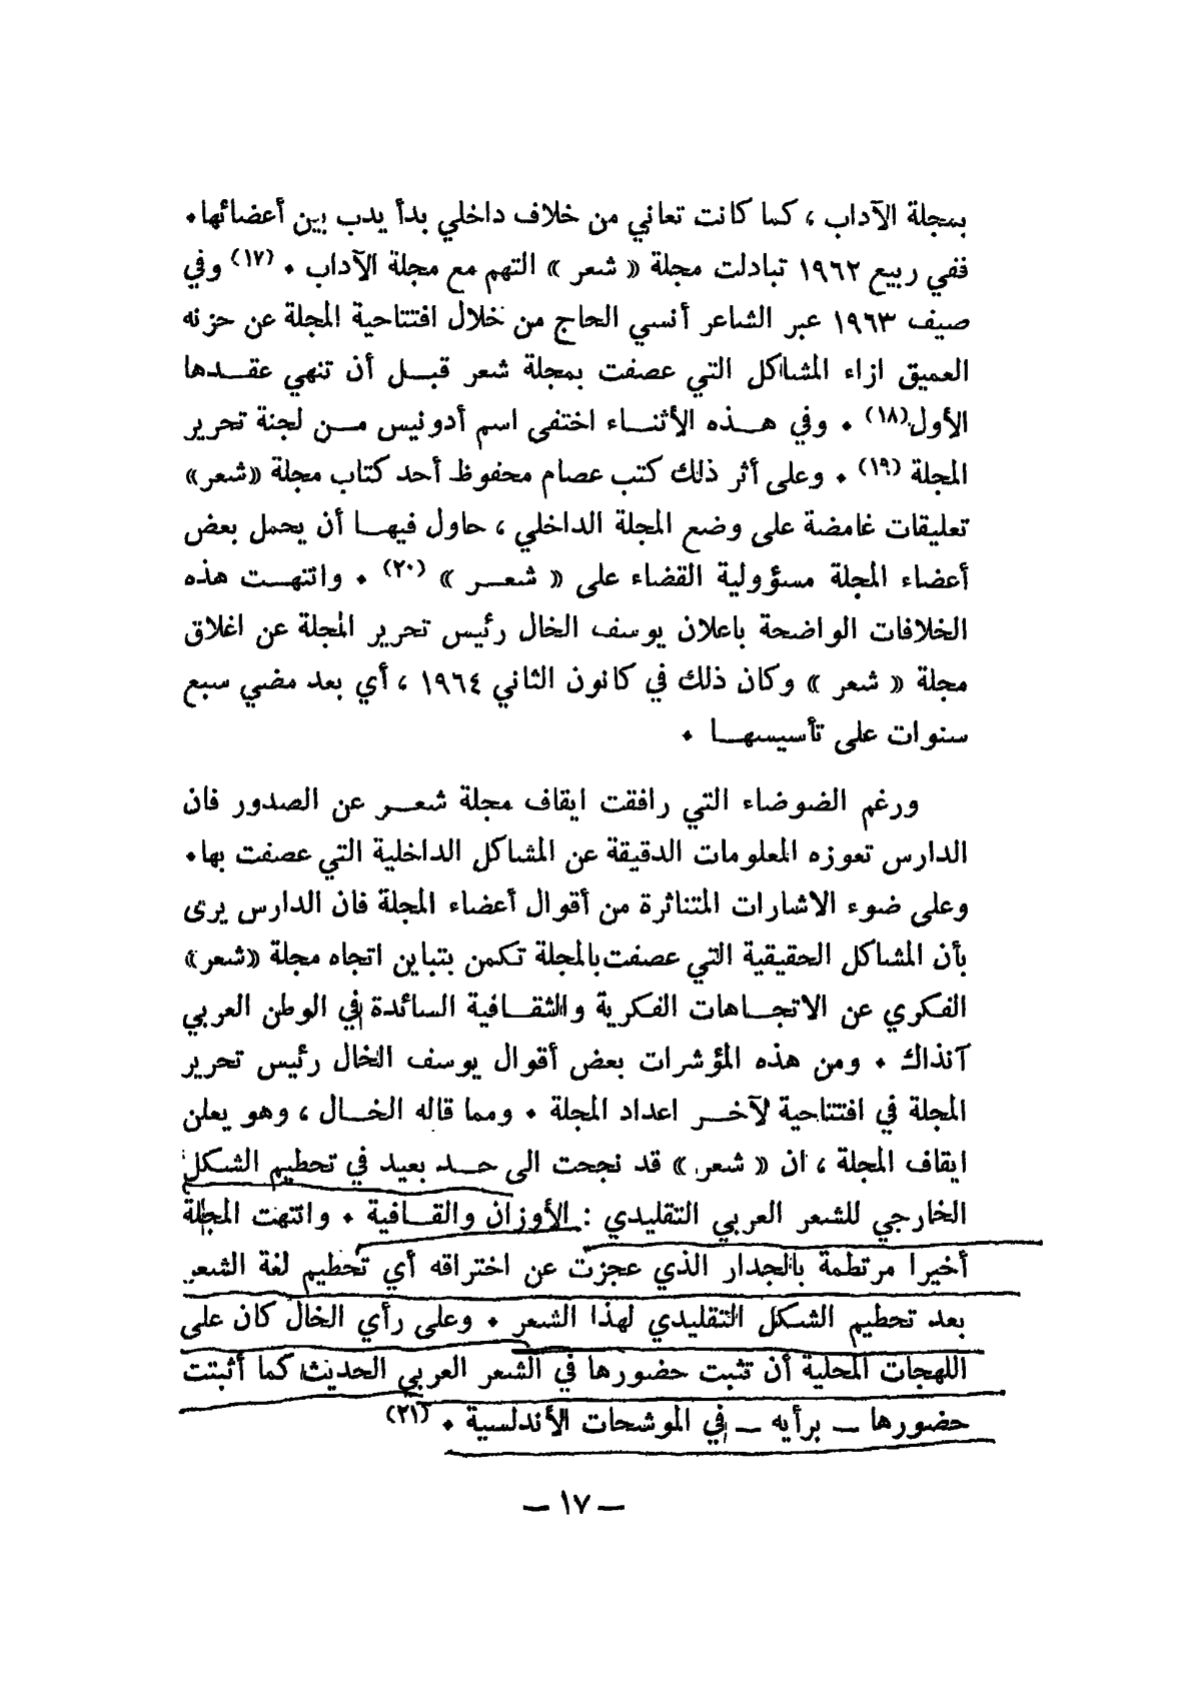 بمجلة الآداب ، كما كانت تعاني من خلاف داخلي بدأ يدب بين أعضائها٠
ففي ربيع ١٩٦٢ تبادلت مجلة « شعر » التهم مع مجلة الآداب ٠ (١٧) وفي
صيف ١٩٦٣ عبر الشاعر أنسي الحاج من خلال افتتاحية المجلة عن حزنه
العميق ازاء المشاكل التي عصفت بمجلة شعر قبــل أن تنهي عقــدها
الأول(١٨) ٠ وفي هــذه الأثنــاء اختفى اسم أدونيس مــن لجنة تحرير
المجلة (١٩) ٠ وعلى أثر ذلك كتب عصام محفوظ أحد كتاب مجلة «شعر»
تعليقات غامضة على وضع المجلة الداخلي ، حاول فيهــا أن يحمل بعض
أعضاء المجلة مسؤولية القضاء على « شعــر » (٢٠) ٠ وانتهــت هذه
الخلافات الواضحة باعلان يوسف الخال رئيس تحرير المجلة عن اغلاق
مجلة « شعر » وكان ذلك في كانون الثاني ١٩٦٤ ، أي بعد مضي سبع
سنوات على تأسيسهــا ٠
ورغم الضوضاء التي رافقت ايقاف مجلة شعــر عن الصدور فان
الدارس تعوزه المعلومات الدقيقة عن المشاكل الداخلية التي عصفت بها٠
وعلى ضوء الاشارات المتناثرة من أقوال أعضاء المجلة فان الدارس يرى
بأن المشاكل الحقيقية التي عصفت بالمجلة تكمن بتباين اتجاه مجلة «شعر»
الفكري عن الاتجــاهات الفكرية والثقــافية السائدة في الوطن العربي
آنذاك ٠ ومن هذه المؤشرات بعض أقوال يوسف الخال رئيس تحرير
المجلة في افتتاحية لآخــر اعداد المجلة ٠ ومما قاله الخــال ، وهو يعلن
ايقاف المجلة ، ان « شعر » قد نجحت الى حــد بعيد في تحطيم الشكل
الخارجي للشعر العربي التقليدي : الأوزان والقــافية ٠ وانتهت المجلة
أخيرا مرتطمة بالجدار الذي عجزت عن اختراقه أي تحطيم لغة الشعر
بعد تحطيم الشكل التقليدي لهذا الشعر ٠ وعلى رأي الخال كان على
اللهجات المحلية أن تثبت حضورها في الشعر العربي الحديث كما أثبتت
حضورها ــ برأيه ــ في الموشحات الأندلسية ٠ (٢١)
ــ ١٧ ــ